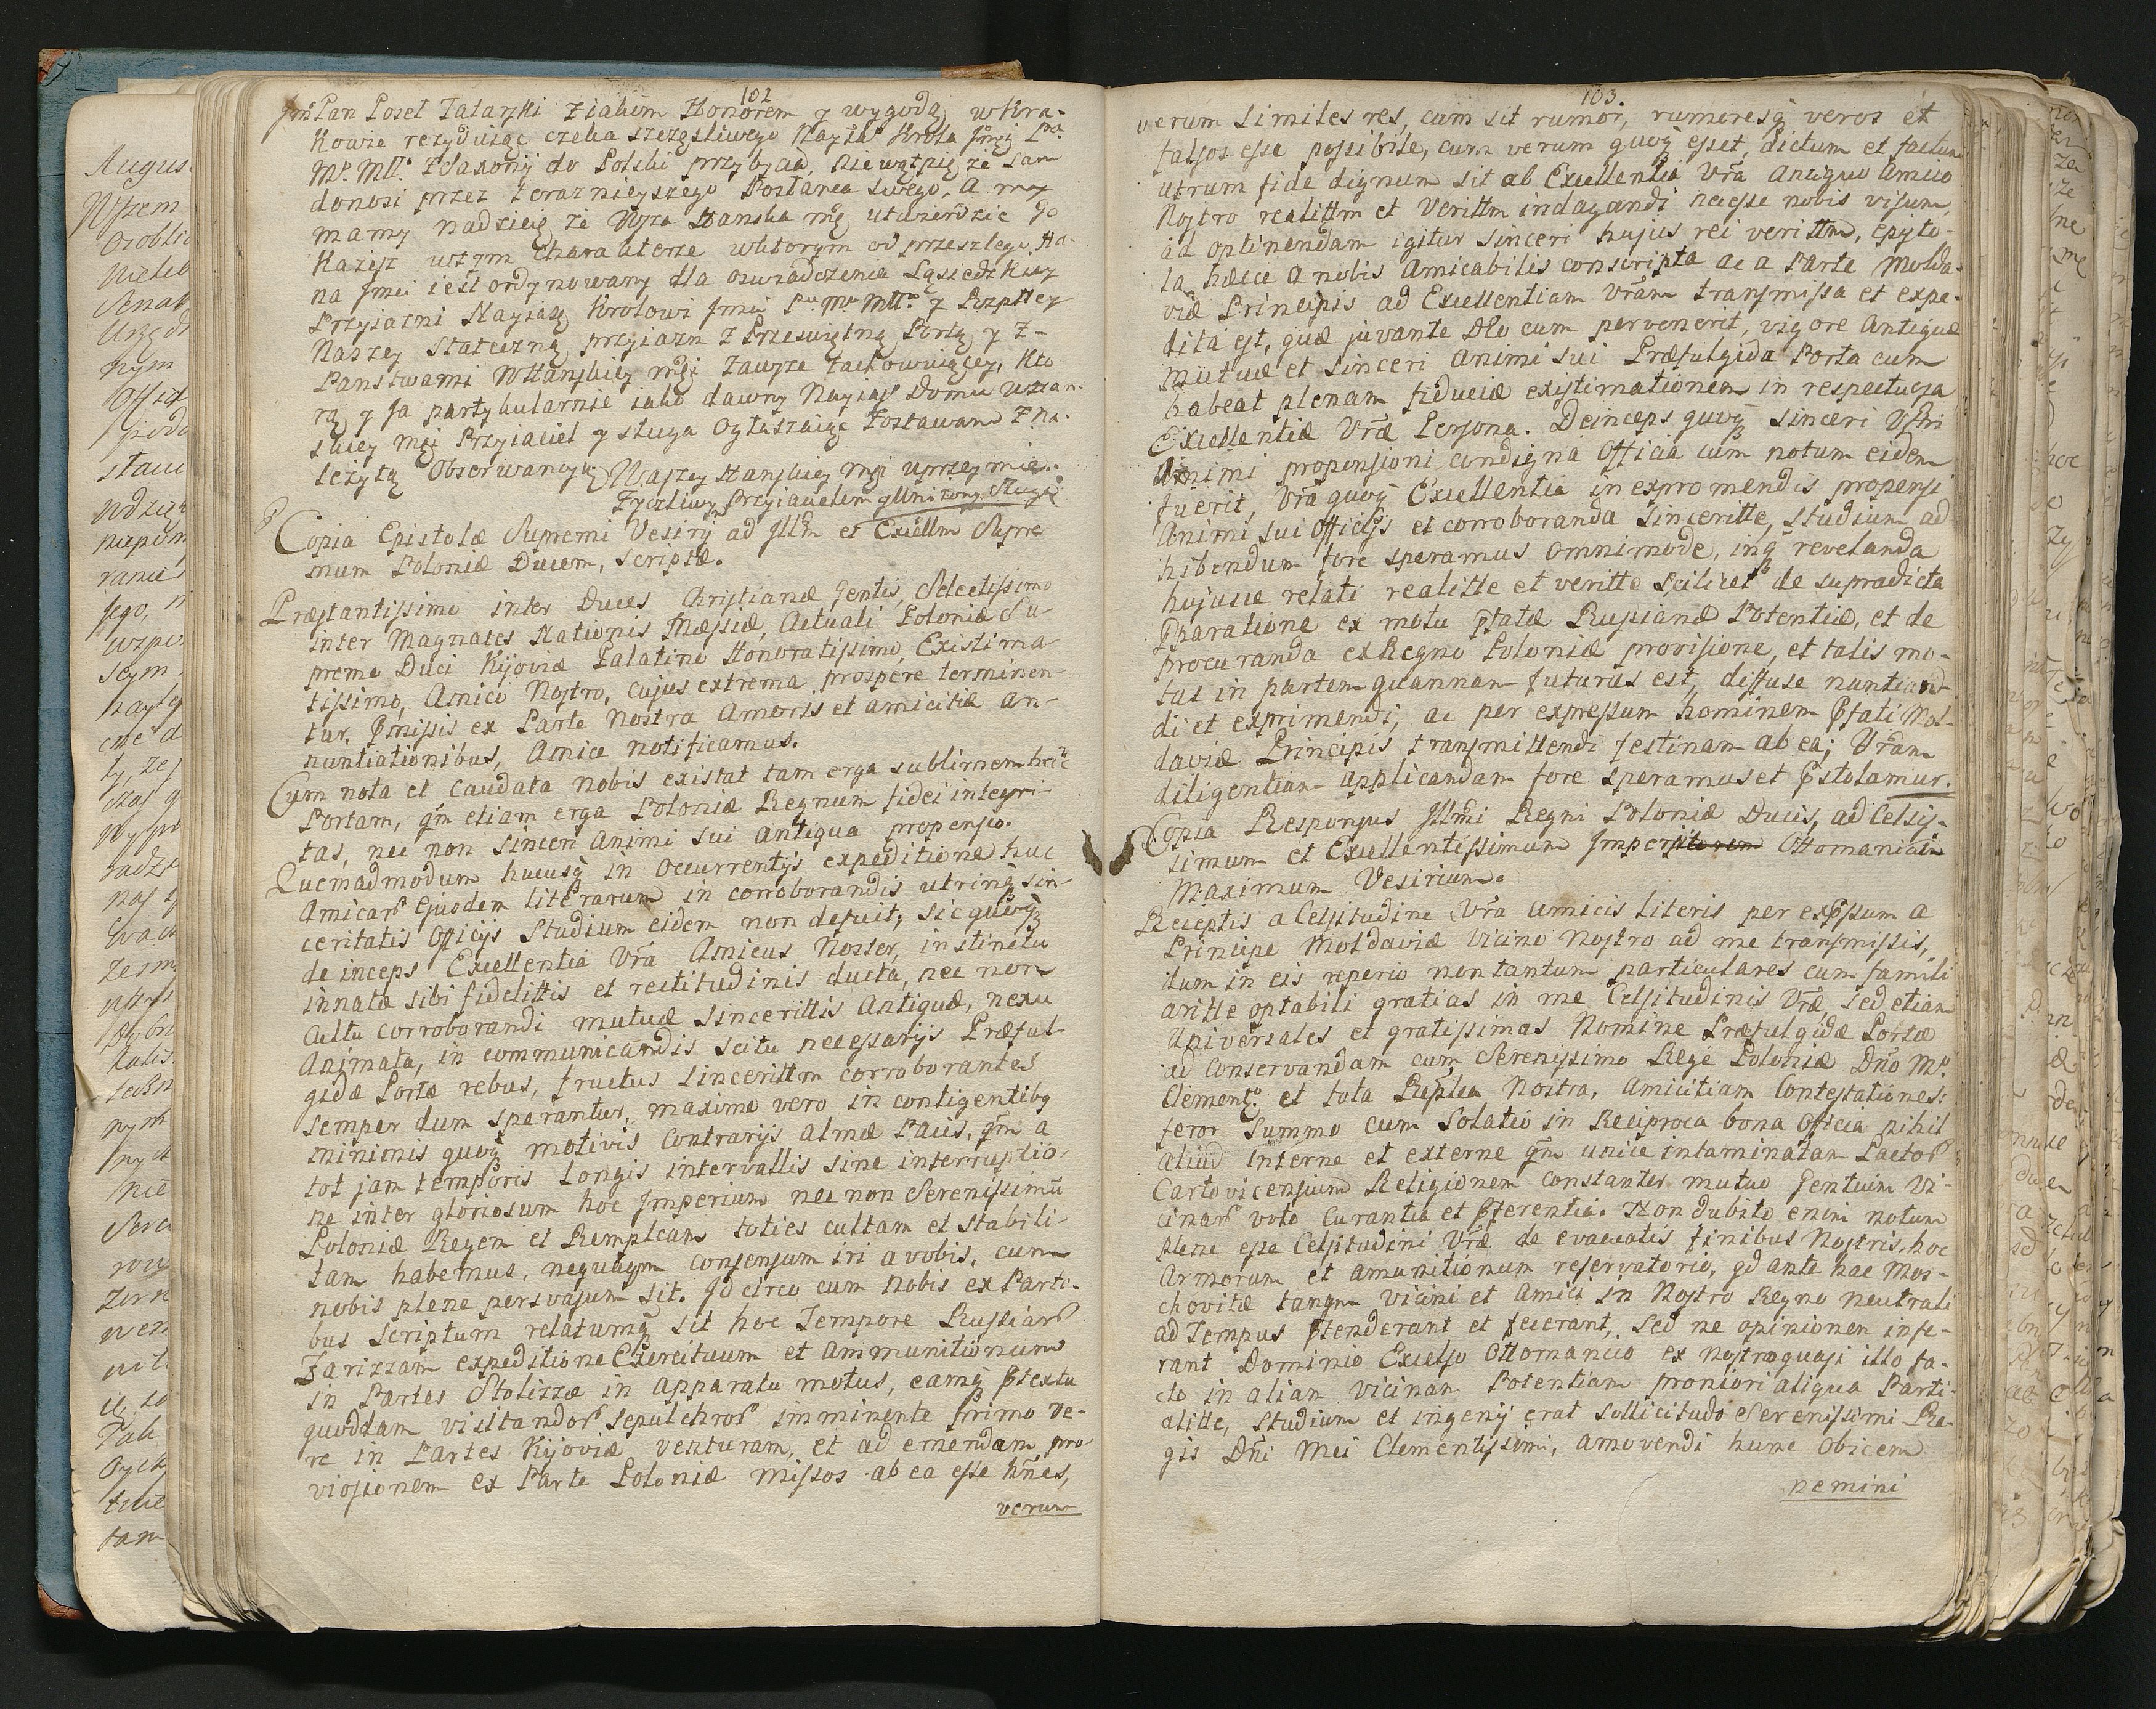 102
Jmć Pan Poseł Tatarski z iakim Honorem y wygodą w Kra-
kowie rezyduiąc czeka szczęsliwego Nayias Krola Jmći Pna
Mo Młło z Saxonij do Polski przybycia, nie wątpię ze sam
donosi przez teraznieyszego Posłanca swego, a my
mamy nadzieię ze Wsza Hanska mć utwierdzic go
każesz w tym Charakterze w ktorym od przeszłego Ha-
na Jmći iest ordynowany dla oswiadczenia Sąsiedzkiey
Przyiazni Nayias Krolowi Jmći Pu Mu Młłu y Rzptey
Naszey stateczną przyiazn z Przeswiętną Portą y z-
Panstwami WHanskiey mći zawsze zachowuiącey, kto
rą y Ja partykularnie iako dawny Nayias Domu WHan-
skiey mći Przyiaciel y sługa ogłaszaiąc zostawam z na-
leżytą Obserwancyą Waszey Hanskiey mći uprzeymie
Zyczliwym Przyiacielem y Uniżonym Sługą
Copia Epistolæ Supremi Vesirij ad Jllm et Excellm Supre
mum Poloniæ Ducem, scriptæ.
Præstantissimo inter Duces Christianæ Gentis, Selectissimo
inter Magnates Nationis Mæssiæ, Actuali Poloniæ Su-
premo Duci Kijoviæ Palatino Honoratissimo, Existima
tissimo, Amico Nostro, cujus extrema prospere terminen-
tur. Pmissis ex Parte Nostra Amoris et amicitiæ an-
nuntiationibus, Amice notificamus.
Cum nota et laudata nobis existat tam erga sublimem hanc
Portam, qm etiam erga Poloniæ Regnum fidei integri-
tas, nec non sinceri Animi sui antiqua propensio.
Quemadmodum hucusq in occurrentijs expeditione huc
Amicar ejusdem literarum in corroborandis utrinq sin-
ceritatis Officijs studium eidem non defuit, sic quoq
deinceps Excellentia Vra Amicus Noster, instinctu
innatæ sibi fidelittis et rectitudinis ducta, nec non
cultu corroborandi mutuæ sincerittis antiquæ, nexu
Animata, in communicandis scitu necessarijs Præful-
gidæ Portæ rebus, fructus sincerittm corroborantes
semper dum sperantur, maxime vero in contigentibq
minimis quoq motivis contrarijs almæ Pacis, qm a
tot jam temporis longis intervallis sine interruptio-
ne inter gloriosum hoc Jmperium nec non Serenissimu
Poloniæ Regem et Remplcam toties cultam et stabili-
tam habemus, nequaqm consensum iri a vobis, cum
nobis plene persvasum sit. Jdcirco cum nobis ex Parti-
bus scriptum relatumq sit hoc Tempore Russiar
Zarizzam expeditione Exercituum et Ammunitionum
in Partes Stolizzæ in Apparatu motus, eamq ptextu
quodam visitandor sepulchror imminente primo ve-
re in Partes Kijoviæ venturam, et ad emendam pro
viosionem ex Parte Poloniæ missos ab ea esse hnes,
verum
103.
verum similes res, cum sit rumor, rumoresq veros et
falsos esse possibile, cum verum quoq esset, dictum et factum
utrum fide dignum sit ab Excellentia Vra Antiquo Amico
Nostro realittm et Verittm indagandi necesse nobis visum,
ad optinendam igitur sinceri hujus rei verittm, episto-
la hæcce a nobis Amicabilis conscripta ac a Parte Molda-
viæ Principis ad Excellentiam Vram transmissa et expe-
dita est, quæ juvante Deo cum pervenerit, vigore Antiquæ
mutuæ et sinceri Animi sui Præfulgida Porta cum
habeat plenam fiduciæ existimationem in respectu sa
Excellentiæ Vræ Persona. Deinceps quoq sinceri Vstri
Animi propensioni condigna Officia cum notum eidem
fuerit, Vra quoq Excellentia in expromendis propensi
Animi sui Officijs et corroboranda sincerittе, studium ad
hibendum fore speramus omnimode, inq revelanda
hujusce relati realitte et veritte scilicet de supradicta
pparatione ex motu pfatæ Russianæ Potentiæ, et de
procuranda ex Regno Poloniæ provisione, et talis mo-
tus in partem quamnam futurus est, diffuse nuntiand-
di et exprimendi, ac per expressum hominem pfati Mol-
daviæ Principis transmittendi festinam ab ea, Vram
diligentiam applicandam fore speramus et pstolamur.
Copia Responsus Jllmi Regni Poloniæ Ducis, ad Celsis-
simum et Excellentissimum Imperitorem Ottomanicum
Maximum Vesirium.
Receptis a Celsitudine Vra amicis literis per expssum a
Principe Moldaviæ Vicino Nostro ad me transmissis,
dum in eis reperio non tantum particulares cum famili
aritte optabili gratias in me Celsitudinis Vræ, sed etiam
Universales et gratissimas Nomine Præfulgidæ Portæ
ad Conservandam cum Serenissimo Rege Poloniæ Dno Mo
Clemento et tota Replca Nostra, Amicitiam Contestationes:
feror Summo cum Solatio in Reciproca bona Officia nihil
aliud interne et externe qm unice intaminatam Pactor
Cartovicensium Religionem constanter mutuo Gentium Vi-
cinar voto Curantia et pferentia. Non dubito enim notum
plene esse Celsitudini Vræ de evacuatis finibus Nostris, hoc
Armorum et amunitionum reservatorio, qd ante hac Mos-
chovitæ tanqm vicini et Amici in Nostro Regno neutrali
ad Tempus ptenderant et fecerant, sed ne opinionem infe-
rant Dominio Excelso Ottomanico ex nostro quasi illo fa-
cto in aliam vicinam Potentiam proniori aliqua Parti-
alitte, studium et ingenij erat sollicitudo Serenissimi Re-
gis Dni Mei Clementissimi, amovendi hunc obicem
nemini